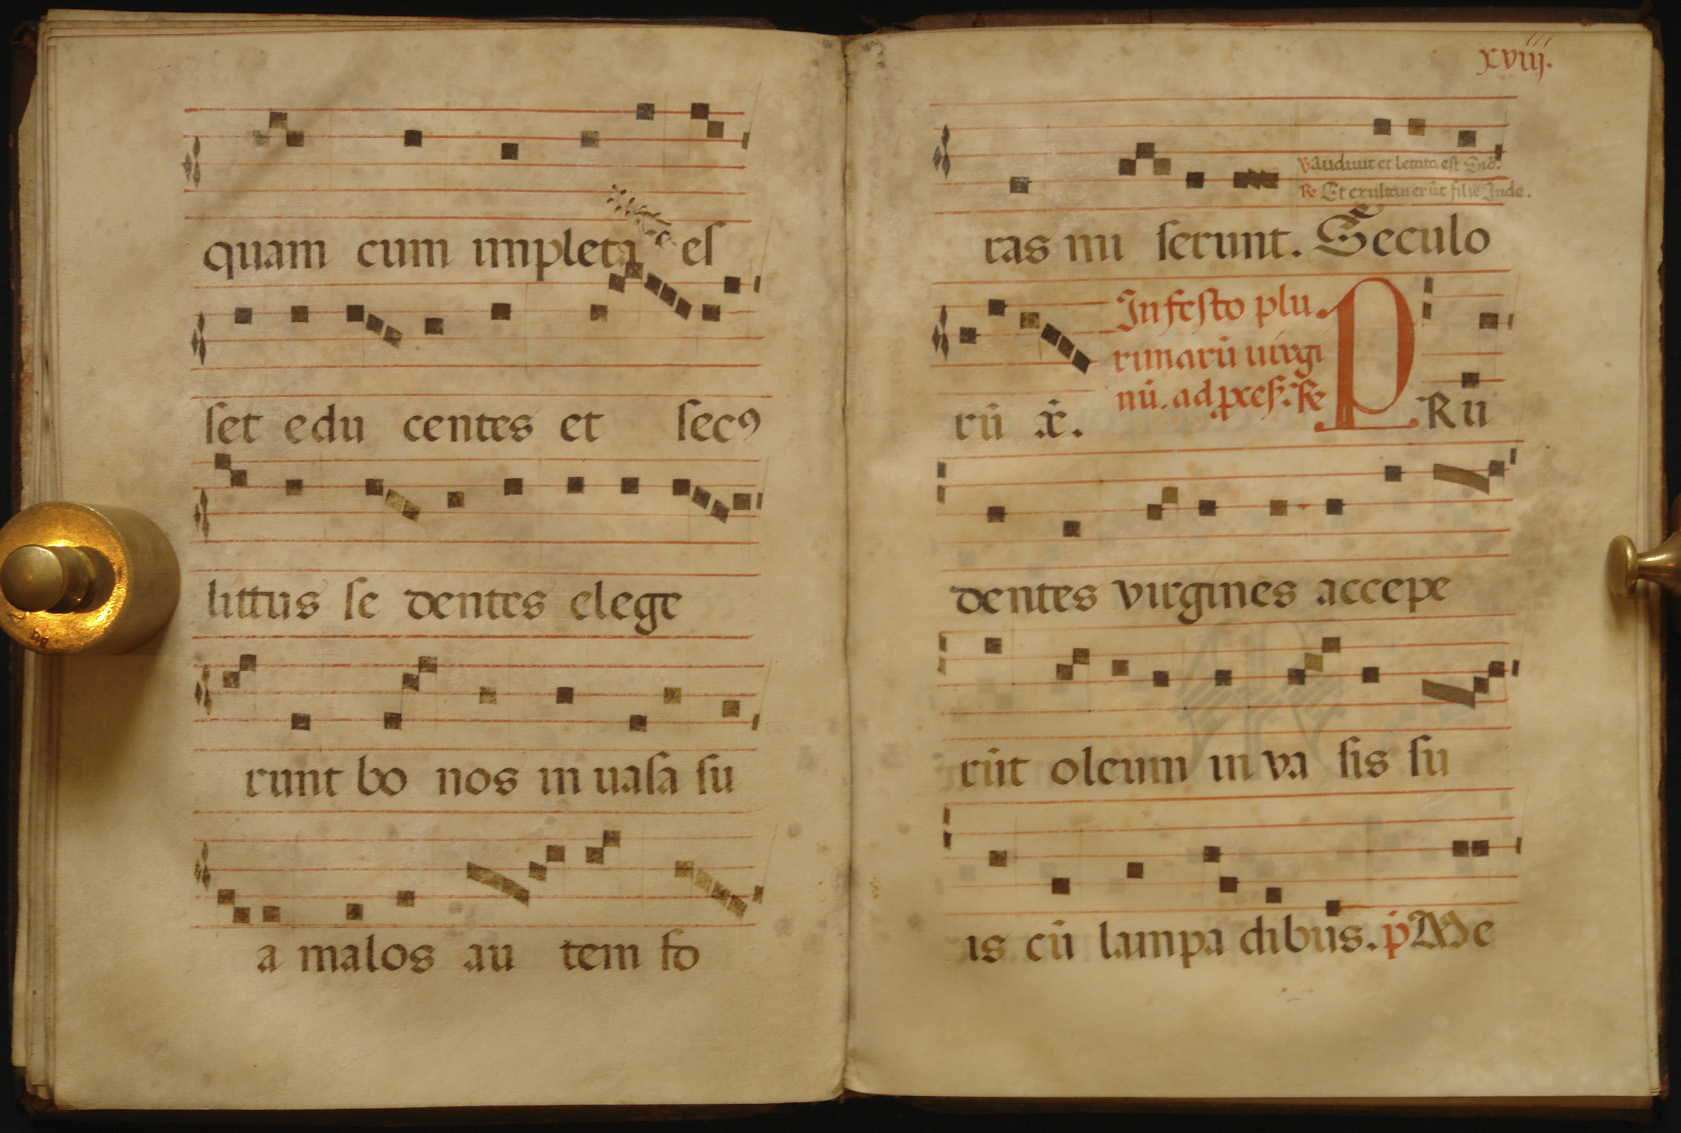 quam cum impleta es
set edu centes et secꝰ
littus se dentes elege
runt bo nos in uasa su
a malos au tem fo
xviij.
ras mi serunt. Seculo
℣ Audiuit et letata est Siō.
℟ Et exultauerūt filie Jude.
rū x̄.
In festo plu
rimarū uirgi
nū. ad
PRu
dentes virgines accepe
rūt oleum in va sis su
is cū lampa dibus. p̄ Me